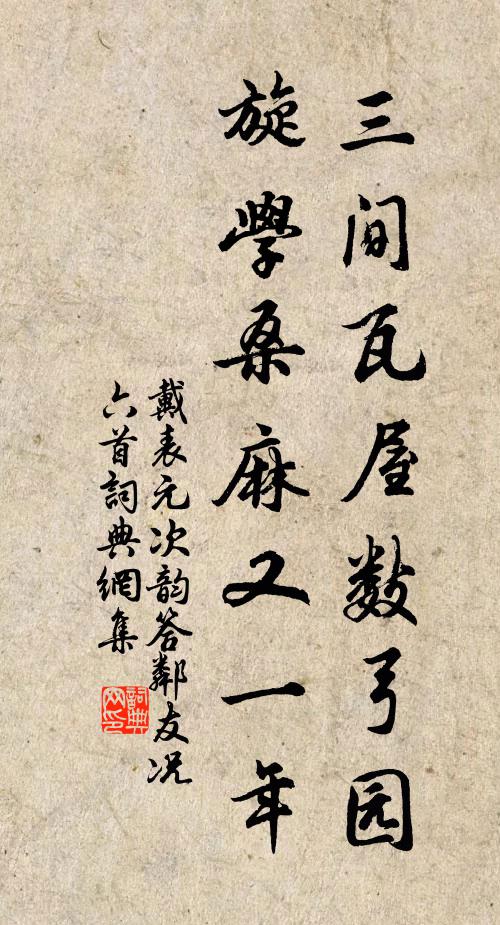 三间瓦屋数弓园
旋學桑麻又一年
戴表元次韵答鄰友况
六首詞典網集
詞典网印